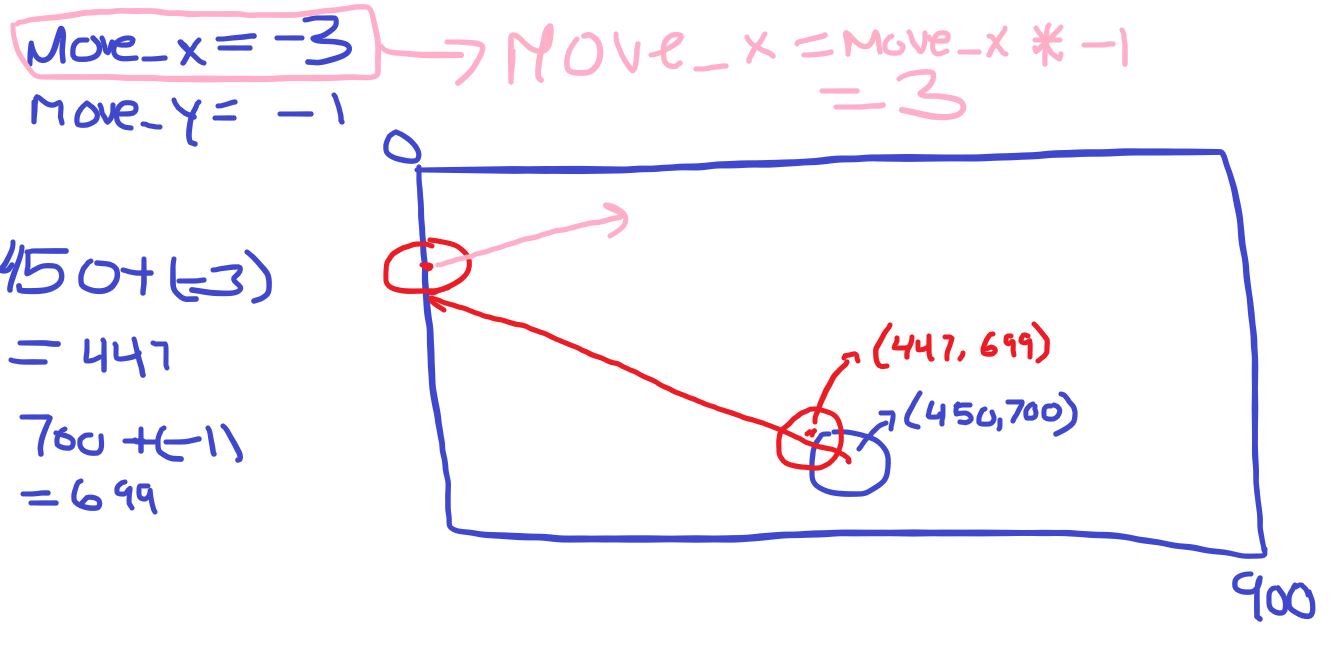 Move_x = -3
MOVE_x = Move_x * -1
= 3
Move_y = -1
0
450+(-3)
= 447
700 +(-1)
= 699
(447, 699)
(450,700)
900